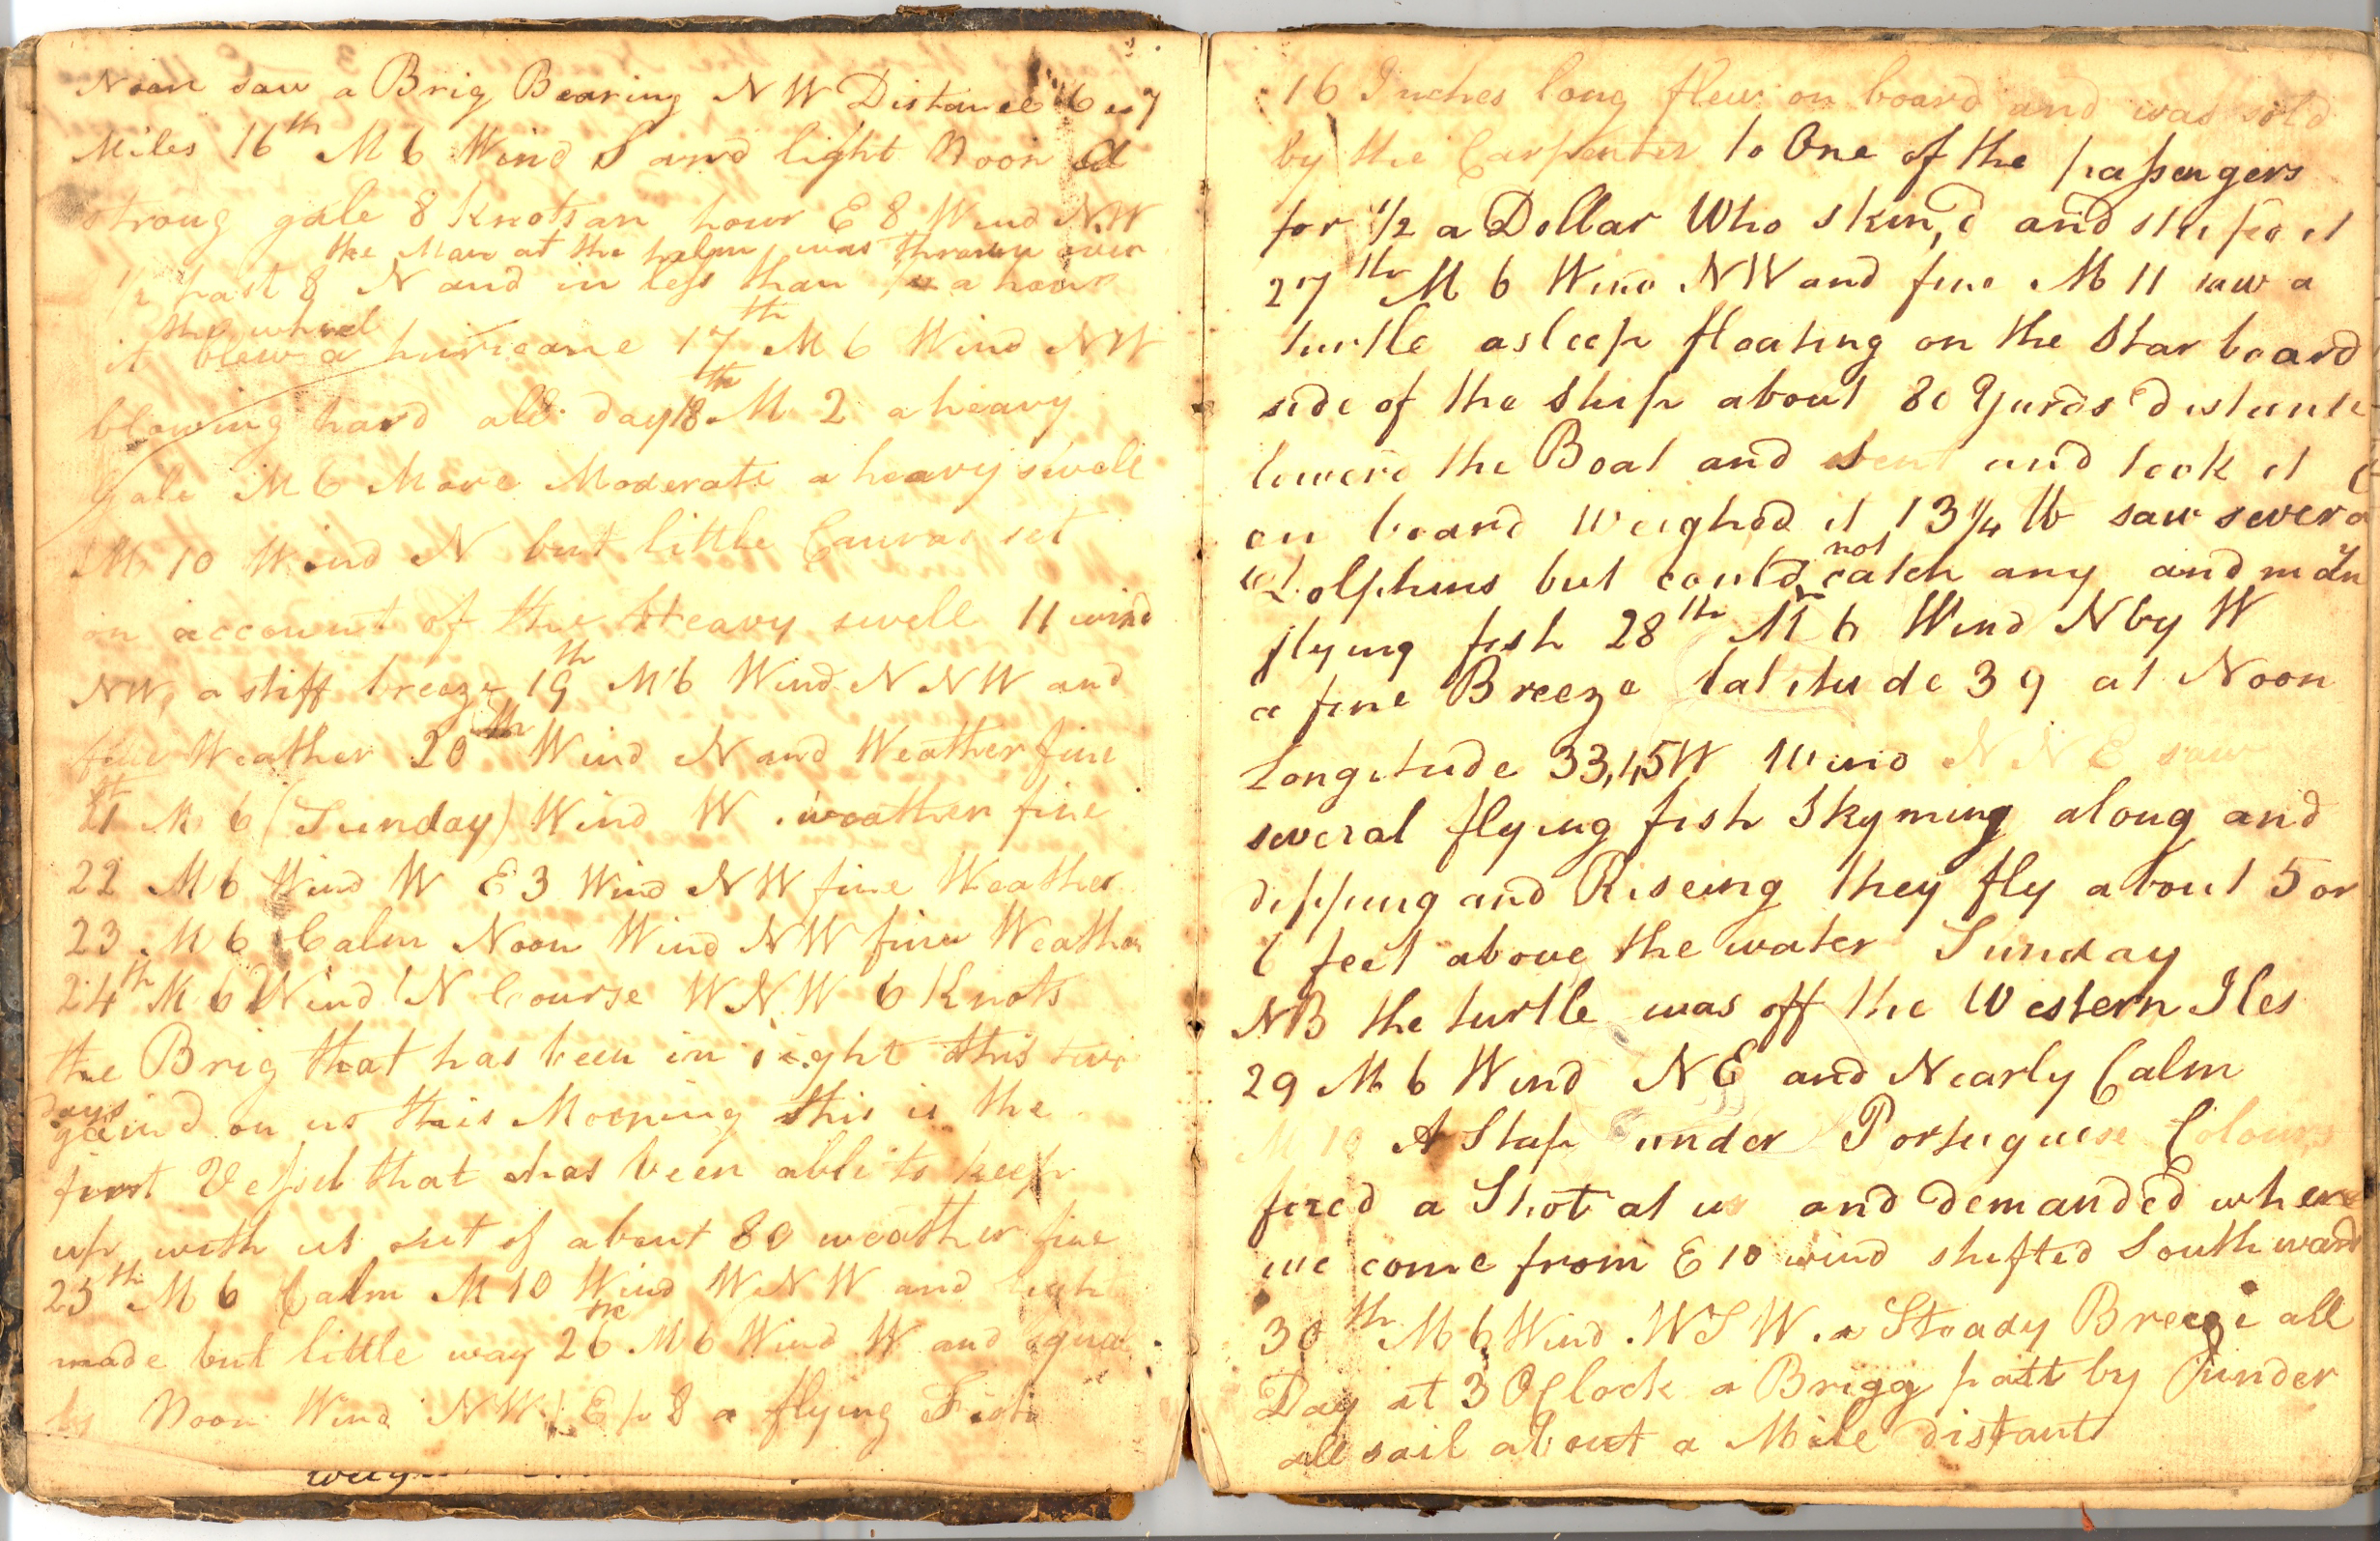 Noon saw a Brig Bearing NW Distance 6 or 7
Miles 16th M 6 Wind S and light Noon a
strong gale 8 Knots an hour E 8 Wind NW
the Man at the helm was thrown over
1/2 past 8 N and in less than 1/4 a hour
the wheel
it blew a huricane 17th M 6 Wind NW
blowing hard all day 18th M 2 a heavy
Gale M 6 More Moderate a heavy swell
M 10 Wind N but little Canvas set
on account of the Heavy swell 11 wind
NW, a stiff breeze 19th M 6 Wind N NW and
fine Weather 20th Wind N and Weather fine
21st M 6 (Sunday) Wind W . weather fine
22 M 6 Wind W E 3 Wind NW fine Weather
23 M 6 Calm Noon Wind NW fine Weather
24th M 6 Wind N Course WNW 6 Knots
the Brig that has been in sight this two
days
gaind on us this Morning this is the
first Vessel that has been able to keep
up with us out of about 80 weather fine
25th M 6 Calm M 10 Wind WNW and ligh
made but little way 26th M 6 Wind W and squal
ly Noon Wind NW E p 8 a flying Fish
weig
16 Inches long flew on board and was sold
by the Carpenter to One of the passengers
for 1/2 a Dollar Who skin,d and stufed it
27th M 6 Wind NW and fine M 11 saw a
turtle asleep floating on the Starboard
side of the Ship about 80 Yards distant
lowerd the Boat and sent and took it
on board Weighed it 13 1/4 lb saw severa
dolphins but could not catch any and man
flying fish 28th M 6 Wind N by W
a fine Breeze latitude 39 at Noon
Longitude 33,15 W Wind N N E saw
several flying fish Skyming along and
dipping and Riseing they fly about 5 or
6 feet above the water Sunday
NB the turtle was off the Western Iles
29 M 6 Wind NE and Nearly Calm
M 10 A Ship under Portuguese Colours
fired a Shot at us and demanded where
we come from E 10 wind shifted Southward
30th M 6 Wind . WSW . a Steady Breeze all
Day at 3 OClock a Brigg past by under
all sail about a Mile distant